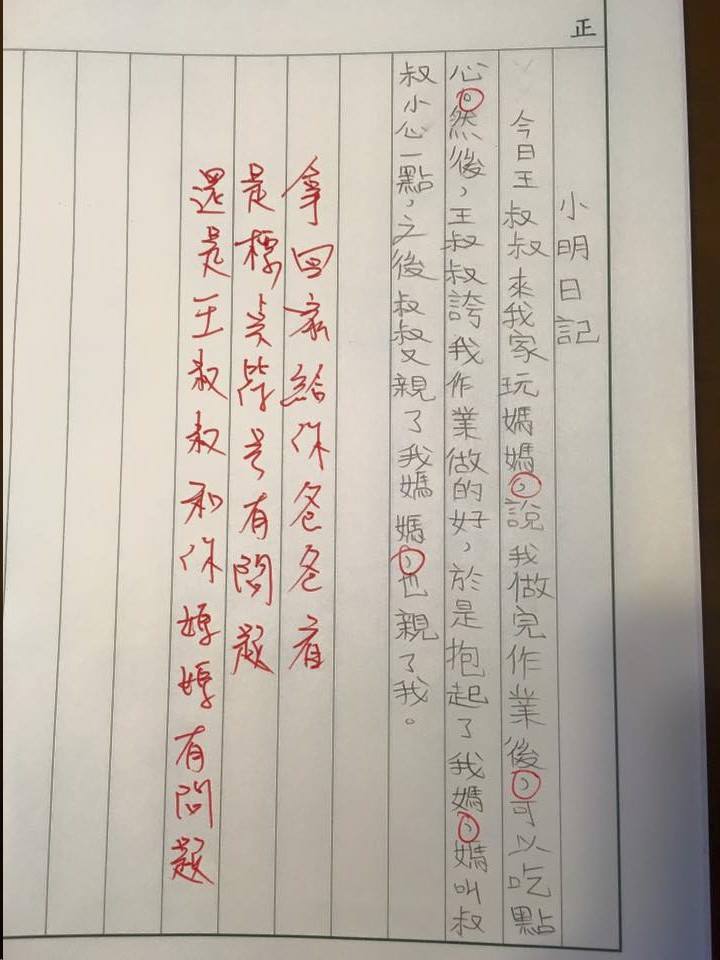 正
小明日記
今日王叔叔來我家玩媽媽，說我做完作業後，可以吃點
心。然後，王叔叔誇我作業做的好，於是抱起了我媽，媽叫叔
叔小心一點，之後叔叔又親了我媽媽，也親了我。
拿回家給你爸爸看
是標點符號有問題
還是王叔叔和你媽媽有問題